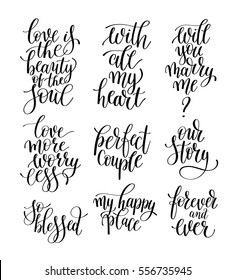 love is
the
beauty
of the
soul
with
all
my
heart
will
you
marry
me
?
love
more
worry
less
perfect
couple
our
story
so
blessed
my happy
place
forever
and
ever
shutterstock
IMAGE ID: 556735945
www.shutterstock.com